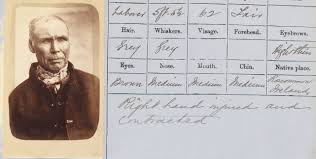 Labourer 5ft 6½ 62 Fair
Hair. Whiskers. Visage. Forehead. Eyebrows.
Grey Grey
Eyes. Nose. Mouth. Chin. Native place.
Brown Medium Medium Medium Roscommon
Ireland
Right hand injured and
contracted